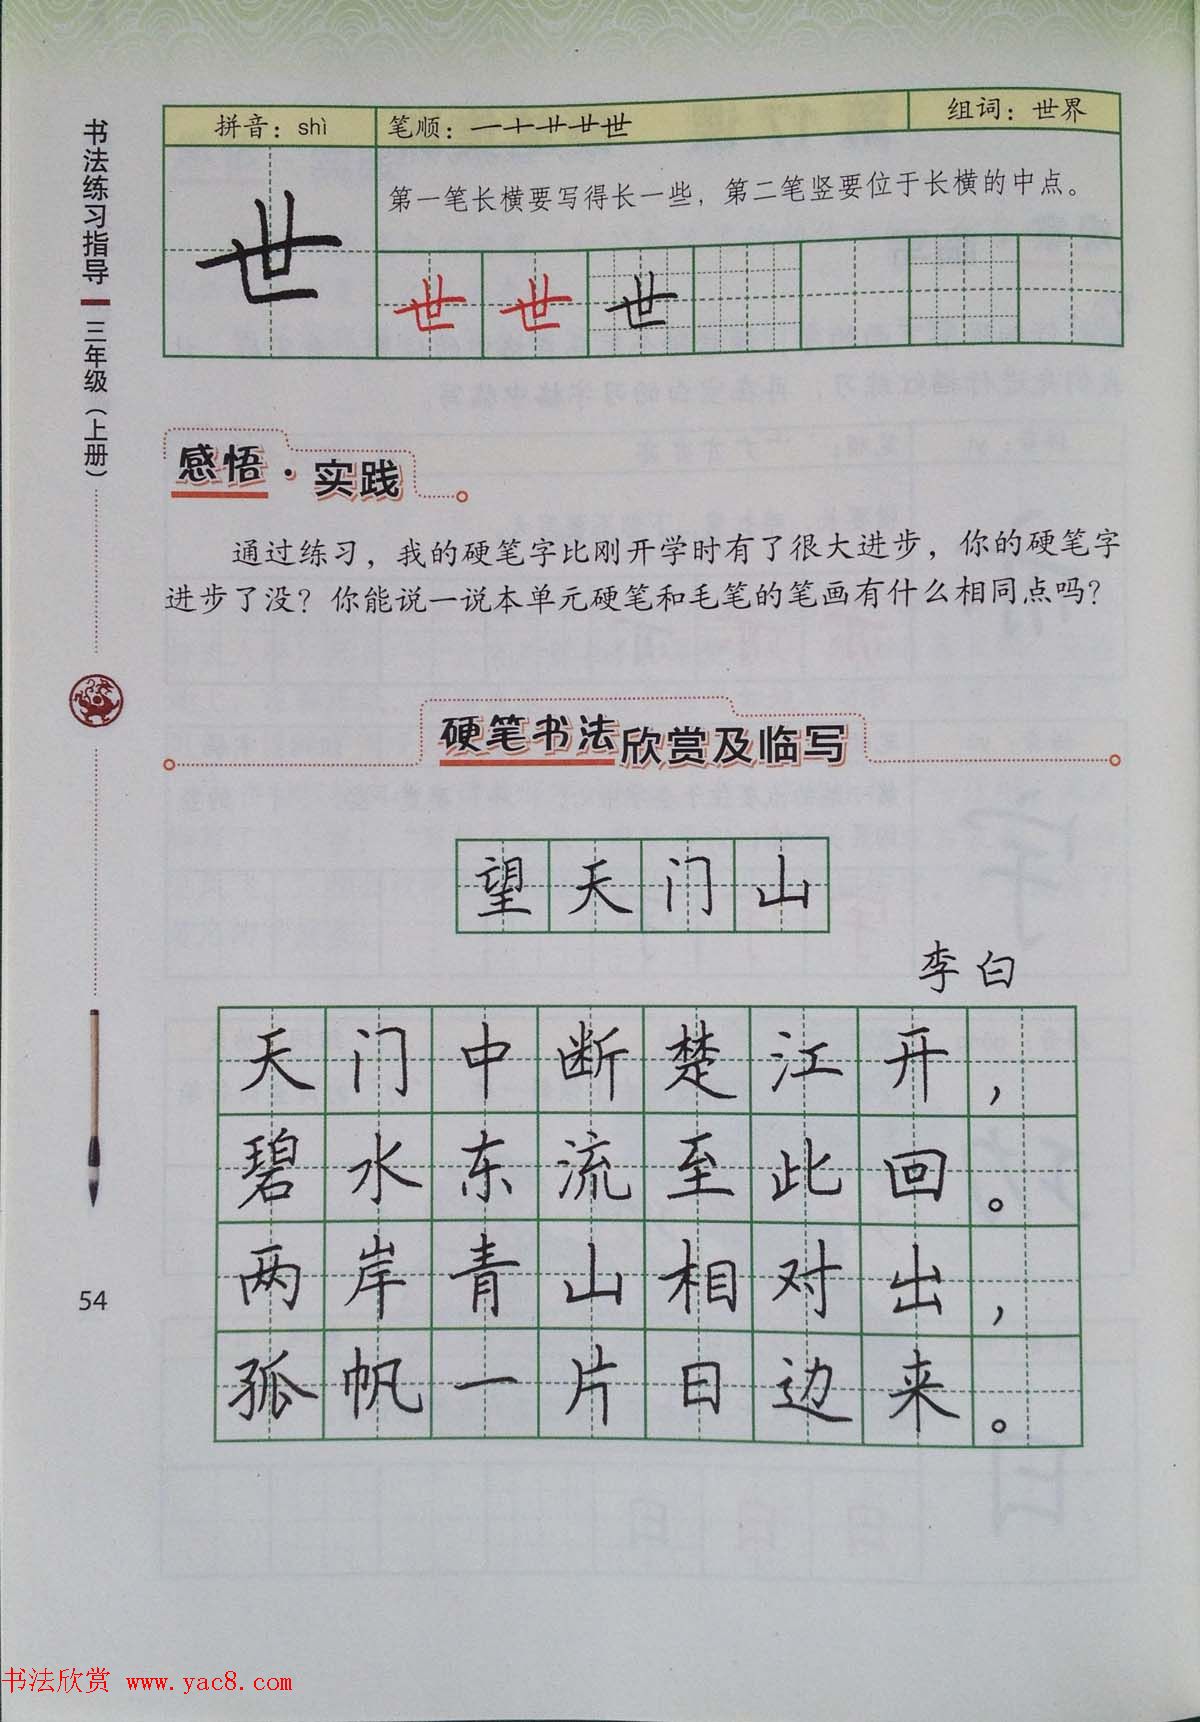 书法练习指导 三年级（上册）
拼音：shì 笔顺：一十廿丗世 组词：世界
世
第一笔长横要写得长一些，第二笔竖要位于长横的中点。
世 世 世
感悟·实践
通过练习，我的硬笔字比刚开学时有了很大进步，你的硬笔字
进步了没？你能说一说本单元硬笔和毛笔的笔画有什么相同点吗？
硬笔书法欣赏及临写
望天门山
李白
天门中断楚江开，
碧水东流至此回。
两岸青山相对出，
孤帆一片日边来。
54
书法欣赏 www.yac8.com